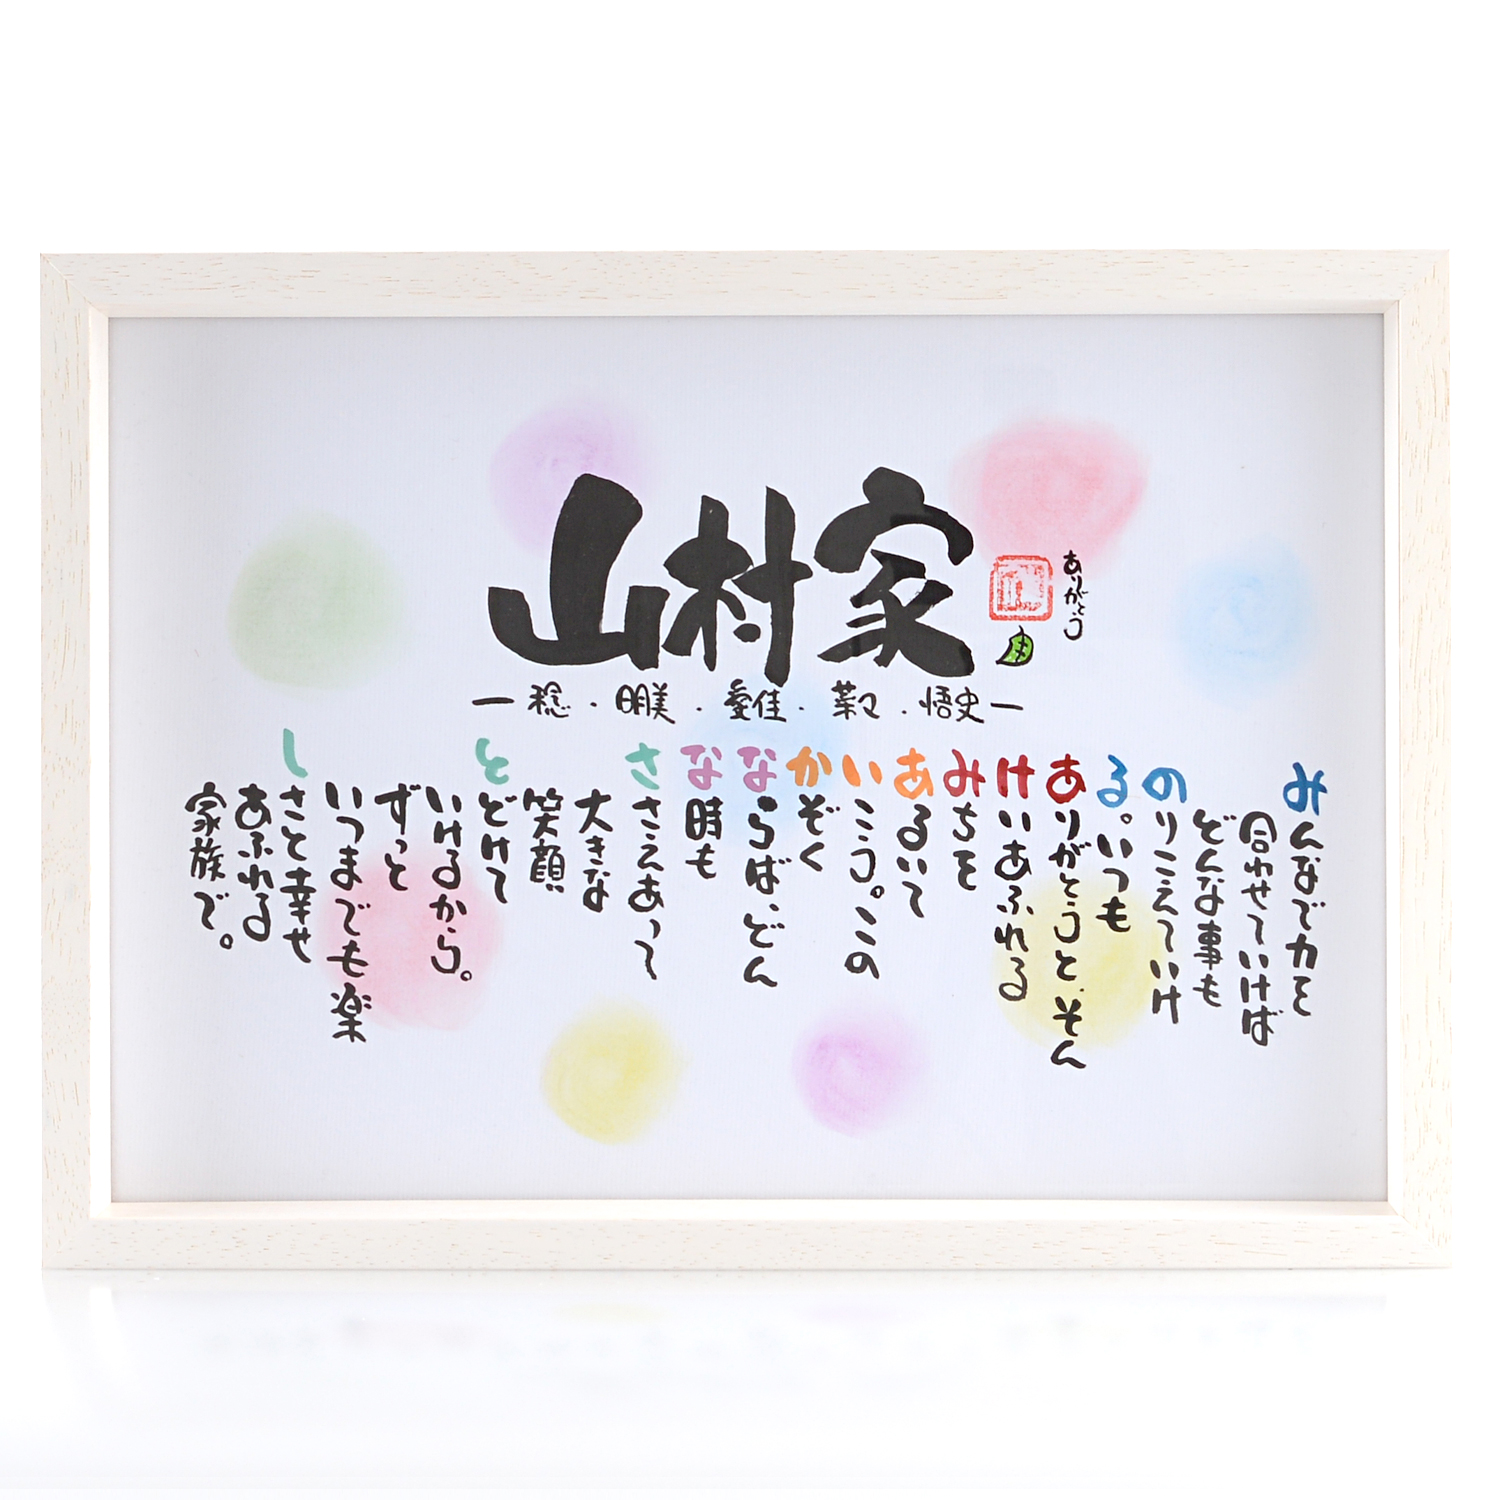 山村家
ありがとう
ー稔・明美・愛佳・菜々・悟史ー
みんなで力を
合わせていけば
どんな事も
のりこえていけ
る。いつも
ありがとうと、そん
けいあふれる
みちを
あるいて
いこう。この
かぞく
ならば、どん
な時も
ささえあって
大きな
笑顔
とどけて
いけるから。
ずっと
いつまでも楽
しさと幸せ
あふれる
家族で。